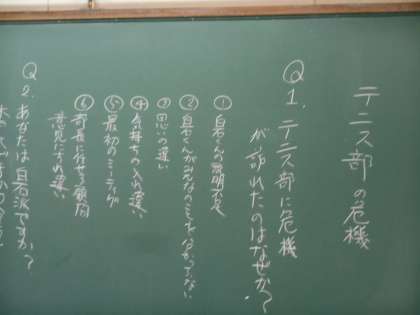 テニス部の危機
Q1. テニス部に危機
が訪れたのはなぜか?
① 白石くんの説明不足
② 白石くんがみんなのことを
③ 思いの違い
④ 気持ちの入れ違い
⑤ 最初のミーティング
⑥ 部長に任せる傾向
意見にすれ違い
Q2. あなたは白石派ですか?